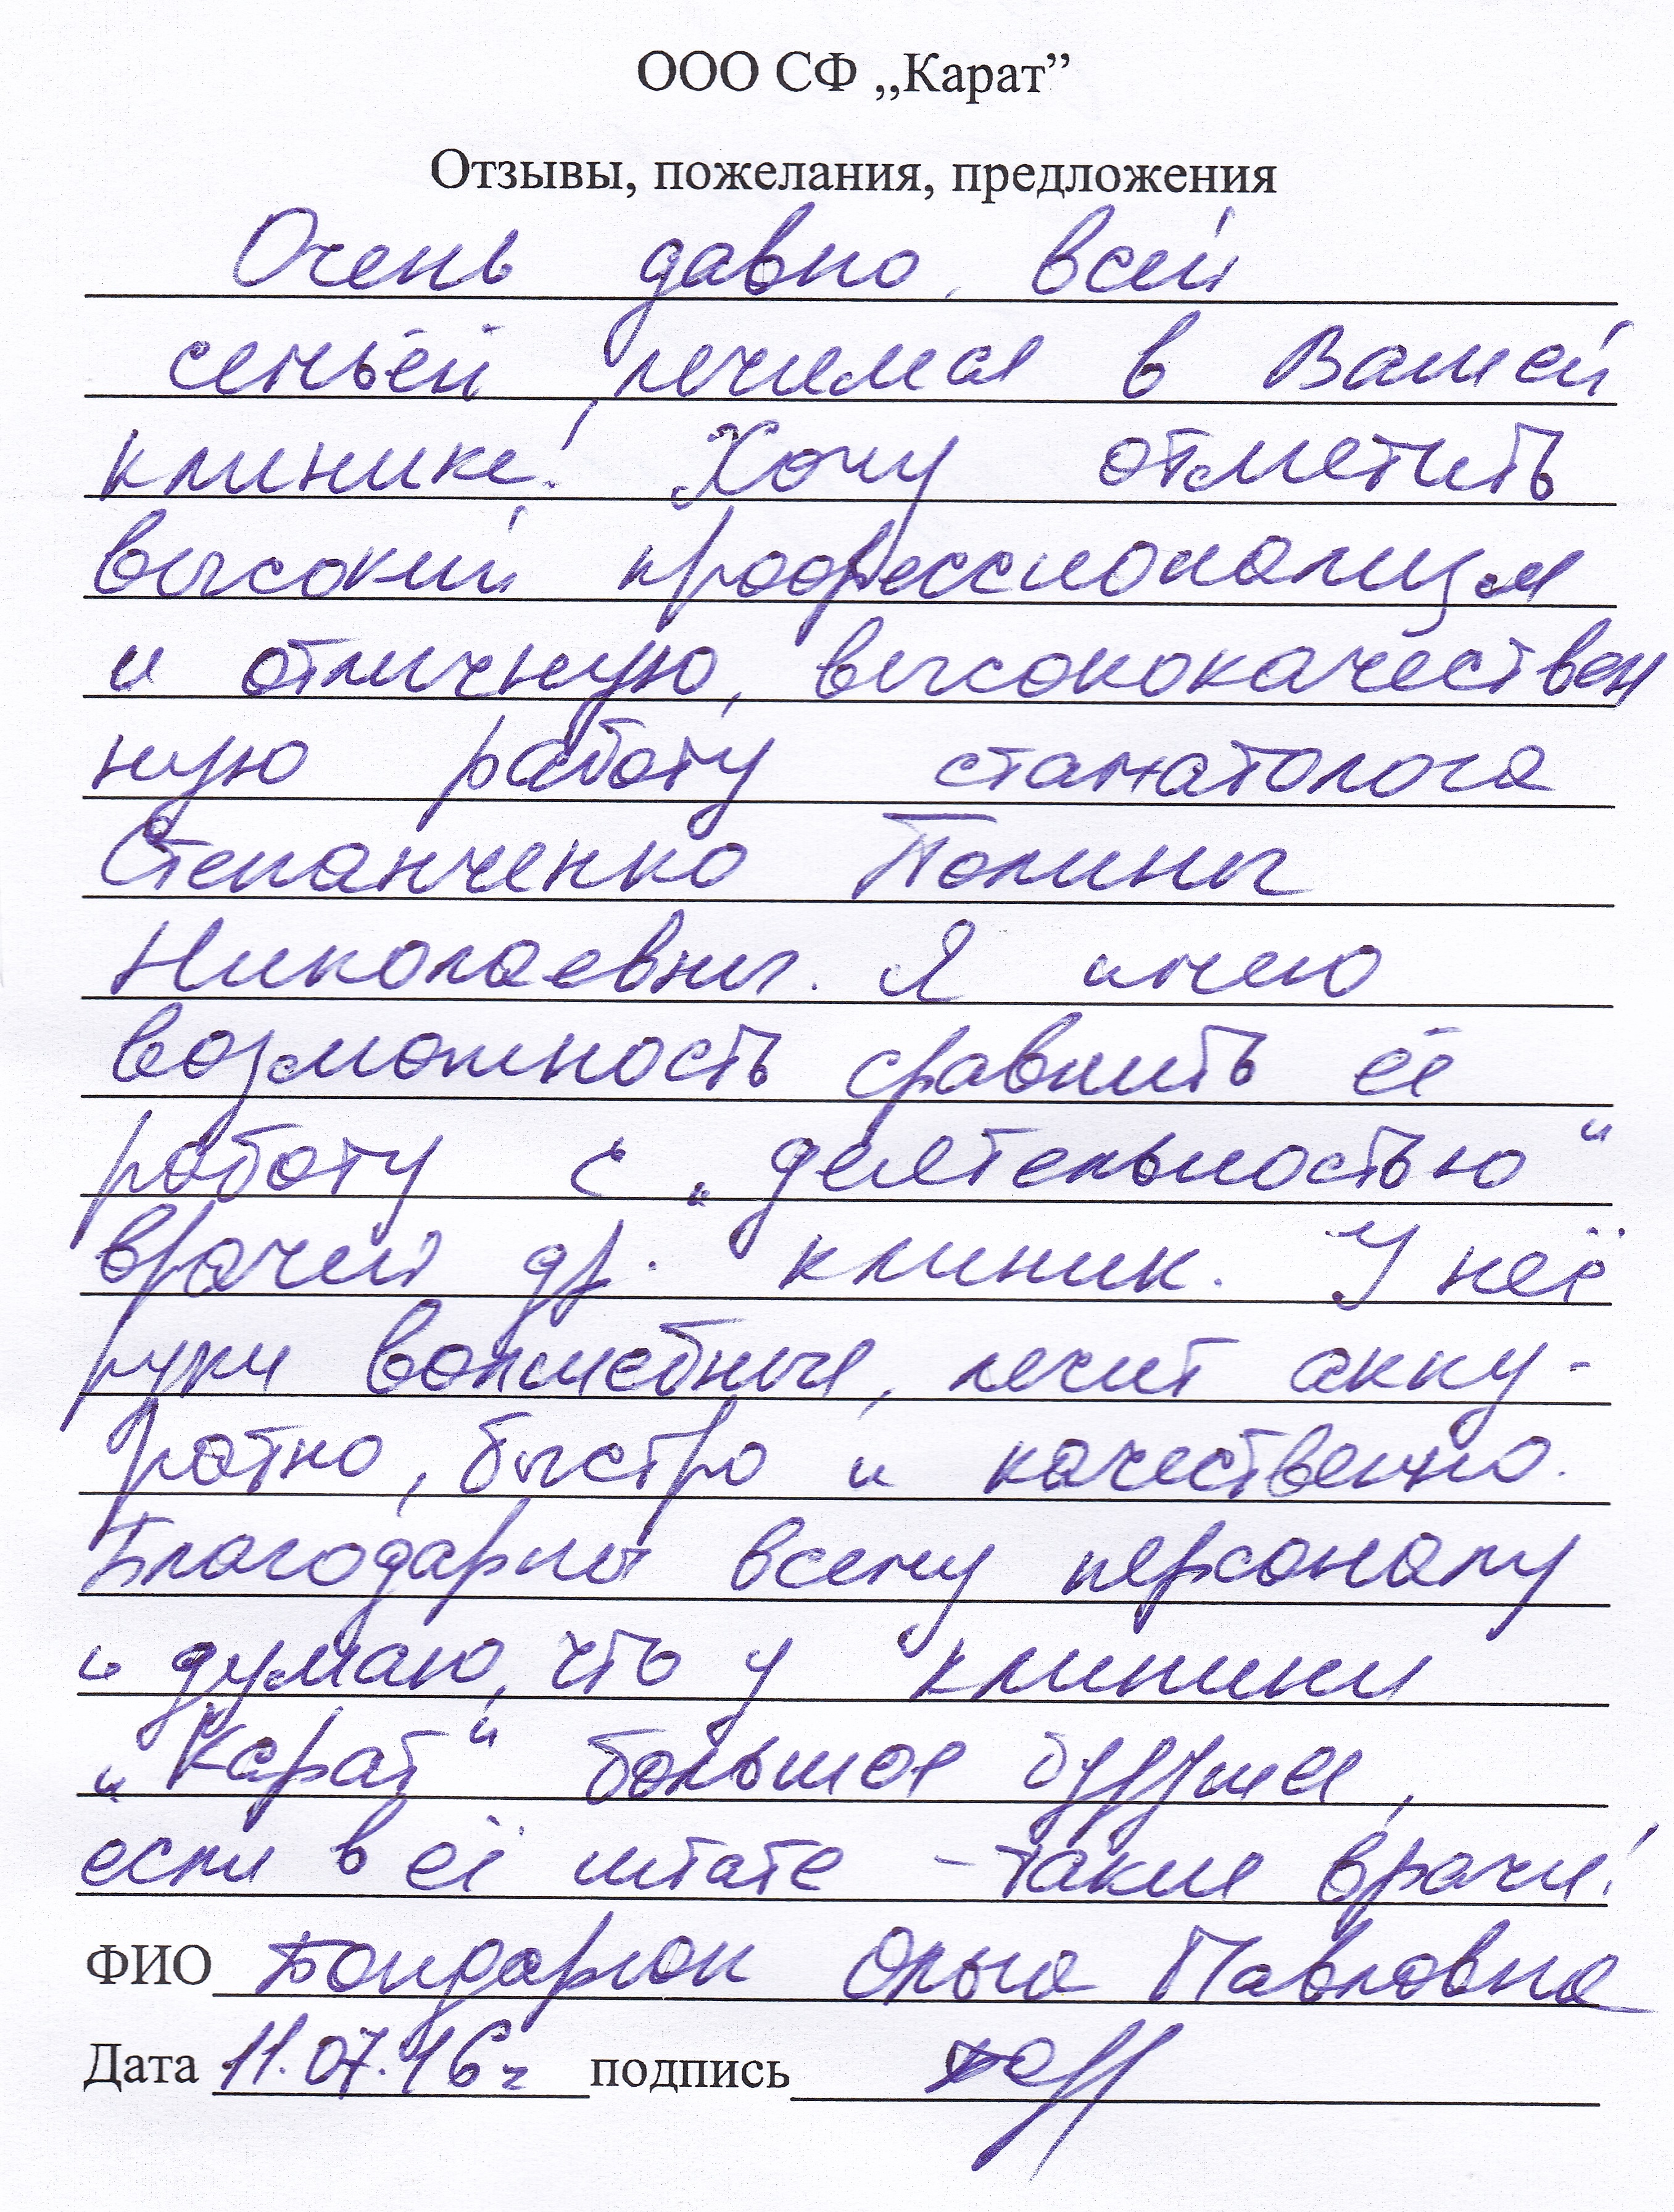 ООО СФ „Карат”
Отзывы, пожелания, предложения
Очень давно, всей
семьёй, лечимся в Вашей
клинике! Хочу отметить
высокий профессионализм
и отличную, высококачествен
ную работу стаматолога
Степанченко Полины
Николаевны. Я имею
возможность сравнить её
работу с „деятельностью“
врачей др. клиник. У неё
руки волшебные, лечит акку-
ратно, быстро и качественно.
Благодарна всему персоналу
и думаю, что у клиники
„Карат“ большое будущее,
если в её штате - такие врачи!
ФИО Бондарюк Ольга Павловна
Дата 11.07.16г подпись